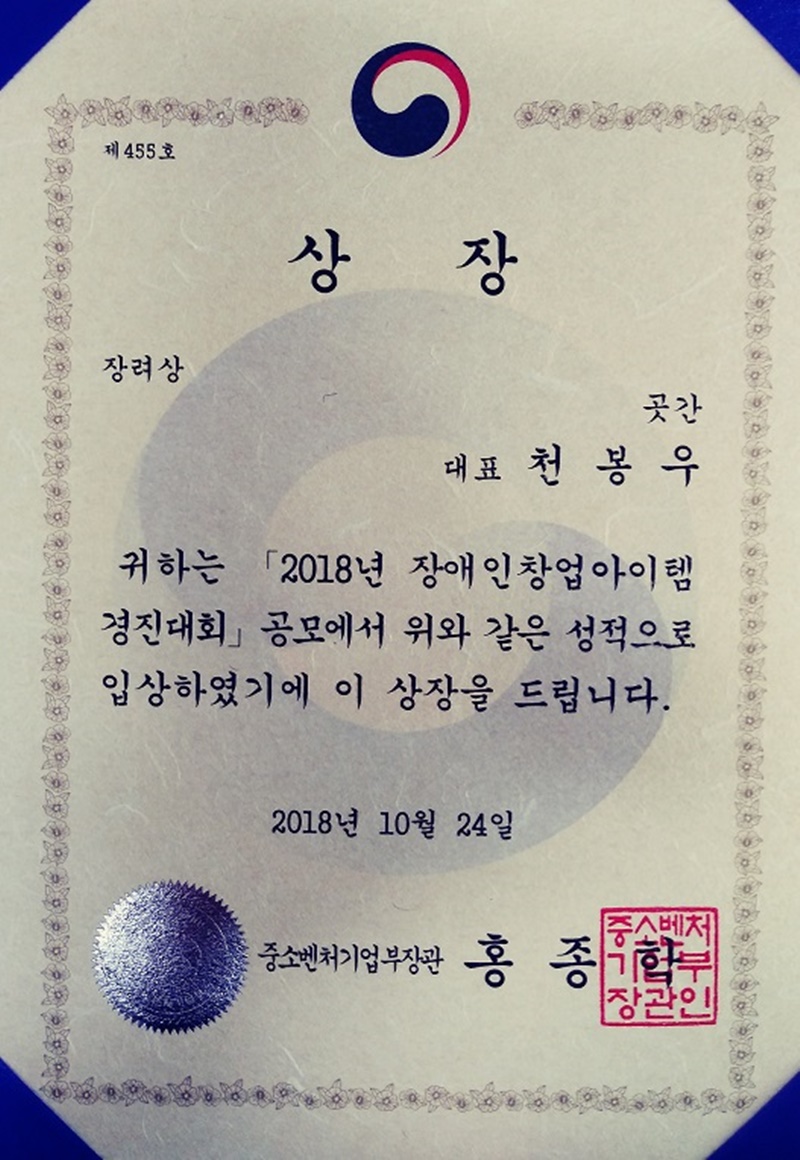 제 455 호
상 장
장려상
곳간
대표 천 봉 우
귀하는 「2018년 장애인창업아이템
경진대회」 공모에서 위와 같은 성적으로
입상하였기에 이 상장을 드립니다.
2018년 10월 24일
중소벤처기업부장관 홍 종 학
중소벤처
기업부
장관인